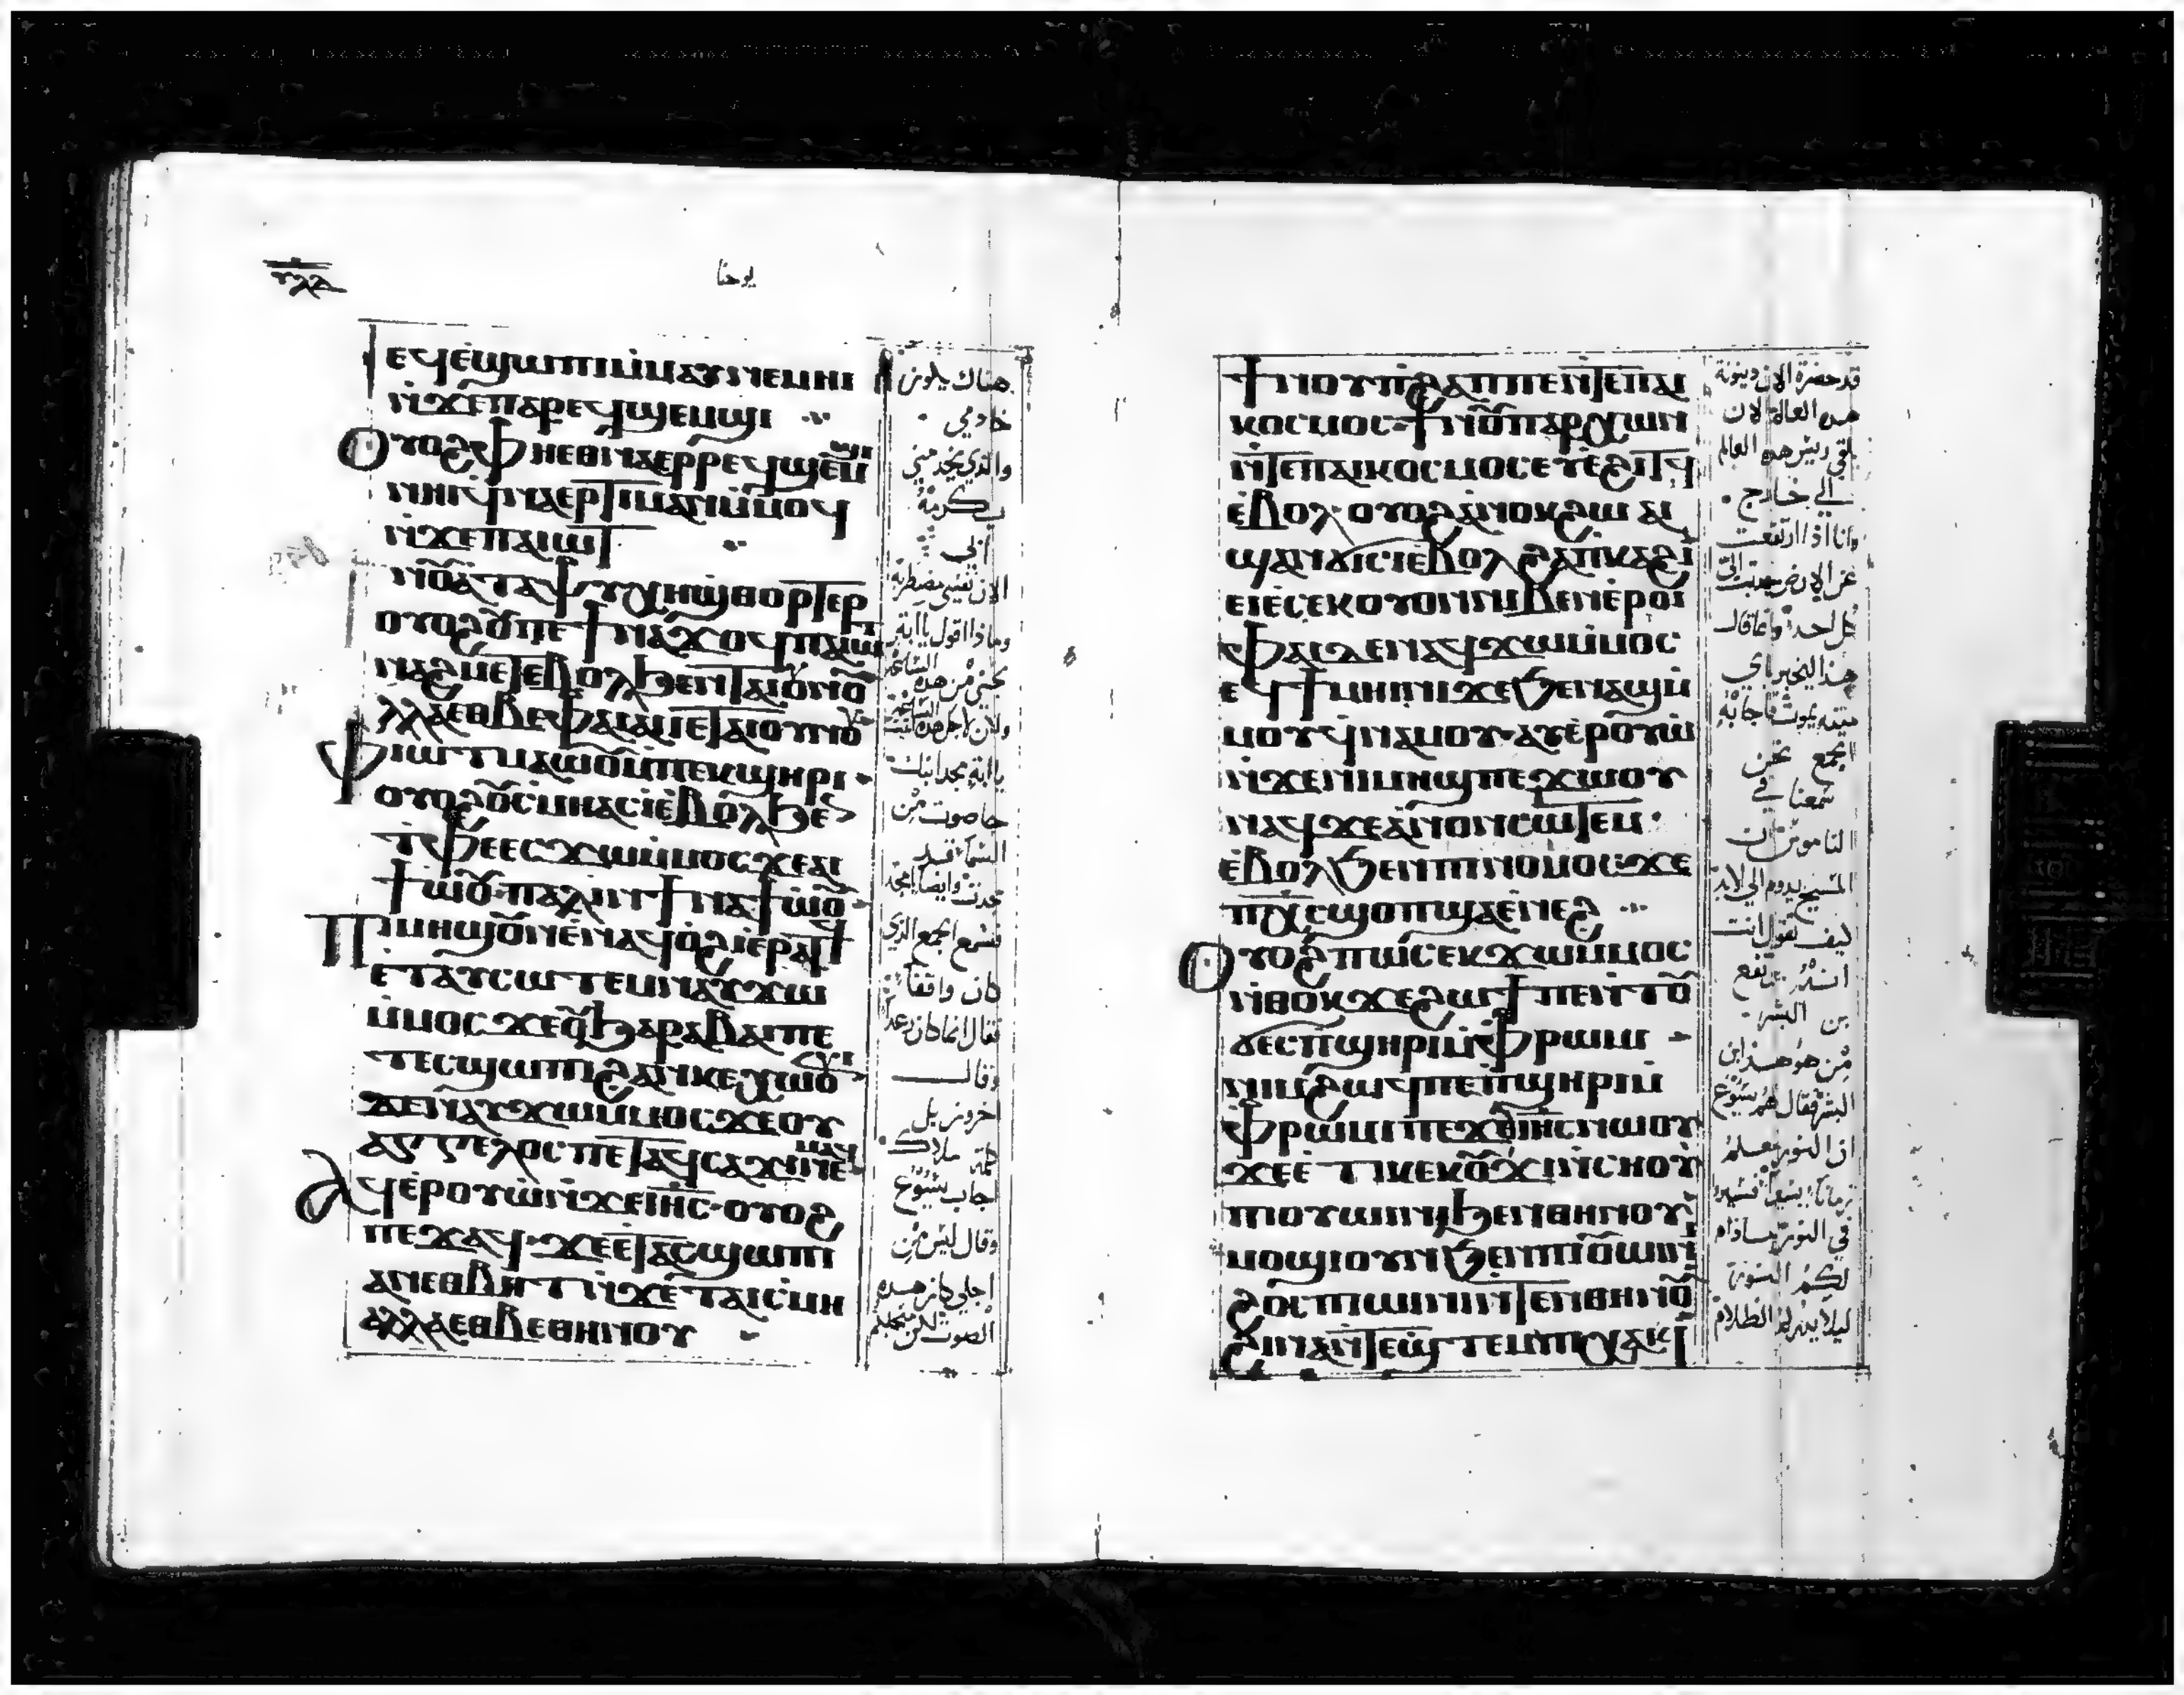 ⲩⲗⲁ
يوحنا
ⲉϥⲉϣⲱⲡⲓⲙ̀ⲙⲁⲩⲛⲉⲙⲏⲓ
ⲛ̀ϫⲉⲡⲁⲣⲉϥϣⲉⲙϣⲓ
ⲟⲩⲟϩⲫⲏⲉⲑⲛⲁⲉⲣⲣⲉϥϣⲉⲙϣⲓ
ⲛⲏⲓϥⲛⲁⲉⲣⲧⲓⲙⲁⲛⲙ̀ⲙⲟϥ
ⲛ̀ϫⲉⲡⲁⲓⲱⲧ
ϯⲛⲟⲩⲁⲧⲁⲯⲩⲭⲏϣⲑⲟⲣⲧⲉⲣ
ⲟⲩⲟϩⲟⲩⲡⲉϯⲛⲁϫⲟϥⲡⲁⲓⲱⲧ
ⲛⲁϩⲙⲉⲧⲉⲃⲟⲗϧⲉⲛⲧⲁⲓⲟⲩⲛⲟⲩ
ⲁⲗⲗⲁⲉⲑⲃⲉⲫⲁⲓⲁⲓⲓⲉⲧⲁⲓⲟⲩⲛⲟⲩ
ⲫⲓⲱⲧⲙⲁⲱⲟⲩⲙ̀ⲡⲉⲕϣⲏⲣⲓ
ⲟⲩⲟϩⲟⲩⲥⲙⲏⲁⲥⲓ̀ⲉ̀ⲃⲟⲗϧⲉⲛ
ⲧⲫⲉⲉⲥϫⲱⲙ̀ⲙⲟⲥϫⲉⲁⲓ
ϯⲱⲟⲩⲡⲁⲗⲓⲛϯⲛⲁϯⲱⲟⲩ
ⲡⲓⲙⲏϣⲟⲩⲛⲉ̀ⲛⲁϥⲟ̀ϩⲓⲉ̀ⲣⲁⲧϥ
ⲉ̀ⲧⲁⲩⲥⲱⲧⲉⲙⲛⲁⲩϫⲱ
ⲙ̀ⲙⲟⲥϫⲉⲟⲩϧⲁⲣⲁⲃⲁⲓⲡⲉ
ⲧⲉⲥϣⲱⲡⲓϩⲁⲛⲕⲉⲭⲱⲟⲩⲛⲓ
ⲇⲉⲛⲁⲩϫⲱⲙ̀ⲙⲟⲥϫⲉⲟⲩ
ⲁⲅⲅⲉⲗⲟⲥⲡⲉⲧⲁϥⲥⲁϫⲓⲛⲉⲙⲁϥ
ⲁϥⲉ̀ⲣⲟⲩⲱ̀ⲛ̀ϫⲉⲓⲏⲥⲟⲩⲟϩ
ⲡⲉϫⲁϥϫⲉⲉ̀ⲧⲁⲥϣⲱⲡⲓ
ⲁⲛⲉⲑⲃⲏⲧⲛ̀ϫⲉⲧⲁⲓⲥ̀ⲙⲏ
ⲁⲗⲗⲁⲉⲑⲃⲉⲑⲏⲛⲟⲩ
هناك يكون
خادمي
والذي يخدمني
يكرمه
أبي
الان نفسي مضطربة
وماذا اقول يا ابة
نجني من هذه الساعة
ولكن لاجل هذه الساعة اتيت
يا ابة مجد ابنك
جا صوت من
السما قد
مجدت وايضا امجد
فسمع الجمع الذي
كان واقفا
فقال انما كان رعد
وقال
اخرون بل
كلمه ملاك
اجاب يسوع
وقال ليس من
اجلي كان هذه
الصوت لكن من اجلكم
ϯⲛⲟⲩⲡϩⲁⲡⲡⲉⲛ̀ⲧⲉⲡⲁⲓ
ⲕⲟⲥⲙⲟⲥϯⲛⲟⲩⲡⲁⲣⲭⲱⲛ
ⲛ̀ⲧⲉⲡⲁⲓⲕⲟⲥⲙⲟⲥⲉⲩⲉ̀ϩⲓⲧϥ
ⲉ̀ⲃⲟⲗⲟⲩⲟϩⲁ̀ⲛⲟⲕϩⲱⲁⲓ
ϣⲁⲛϭⲓⲥⲓⲉ̀ⲃⲟⲗϩⲁⲡⲕⲁϩⲓ
ⲉⲓⲉ̀ⲥⲉⲕⲟⲩⲟⲛⲛⲓⲃⲉⲛⲉ̀ⲣⲟⲓ
ⲫⲁⲓⲇⲉⲛⲁϥϫⲱⲙ̀ⲙⲟⲥ
ⲉϥϯⲙⲏⲓⲛⲓϫⲉϧⲉⲛⲁϣⲙ̀
ⲙⲟⲩϥⲛⲁⲙⲟⲩⲁⲩⲉ̀ⲣⲟⲩⲱ̀
ⲛ̀ϫⲉⲡⲓⲙⲏϣⲡⲉϫⲱⲟⲩ
ⲛⲁϥϫⲉⲁ̀ⲛⲟⲛⲥⲱⲧⲉⲙ
ⲉ̀ⲃⲟⲗϧⲉⲛⲡⲓⲛⲟⲙⲟⲥϫⲉ
ⲡⲭ̅ⲥ̅ϣⲟⲡϣⲁⲉ̀ⲛⲉϩ
ⲟⲩⲟϩⲡⲱⲥⲉⲕϫⲱⲙ̀ⲙⲟⲥ
ⲛ̀ⲑⲟⲕϫⲉϩⲱϯⲡⲉⲛⲧⲟⲩ
ϭⲉⲥⲡϣⲏⲣⲓⲙ̀ⲫⲣⲱⲙⲓ
ⲛⲓⲙϩⲱϥⲡⲉⲡϣⲏⲣⲓⲙ̀
ⲫⲣⲱⲙⲓⲡⲉϫⲉⲓⲏⲥⲛⲱⲟⲩ
ϫⲉⲉ̀ⲧⲓⲕⲉⲕⲟⲩϫⲓⲛ̀ⲥⲏⲟⲩ
ⲡⲓⲟⲩⲱⲓⲛⲓϧⲉⲛⲑⲏⲛⲟⲩ
ⲙⲟϣⲓⲟⲩⲛϧⲉⲛⲡⲓⲟⲩⲱⲓⲛⲓ
ϩⲟⲥⲡⲓⲱⲓⲛⲓⲛⲧⲉⲛⲑⲏⲛⲟⲩ
ϩⲓⲛⲁⲛ̀ⲧⲉϣⲧⲉⲙⲡⲓⲭⲁⲕⲓ
قد حضرة الان دينونة
هذه العالم الان
يلقي رئيس هذه العالم
الي خارج
وانا اذا ارتفعت
عن الارض جذبت الي
كل احد وانما قال
هذا ليخبر باي
ميته يموت فاجابه
الجمع نحن
سمعنا في
الناموس ان
المسيح يدوم الي الابد
كيف تقول انت
انه يرتفع
بن البشر
من هو هذا ابن
البشر فقال لهم يسوع
ان النور معكم
زمانا يسيرا
في النور مادام
لكم النور
ليلا يدرككم الظلام